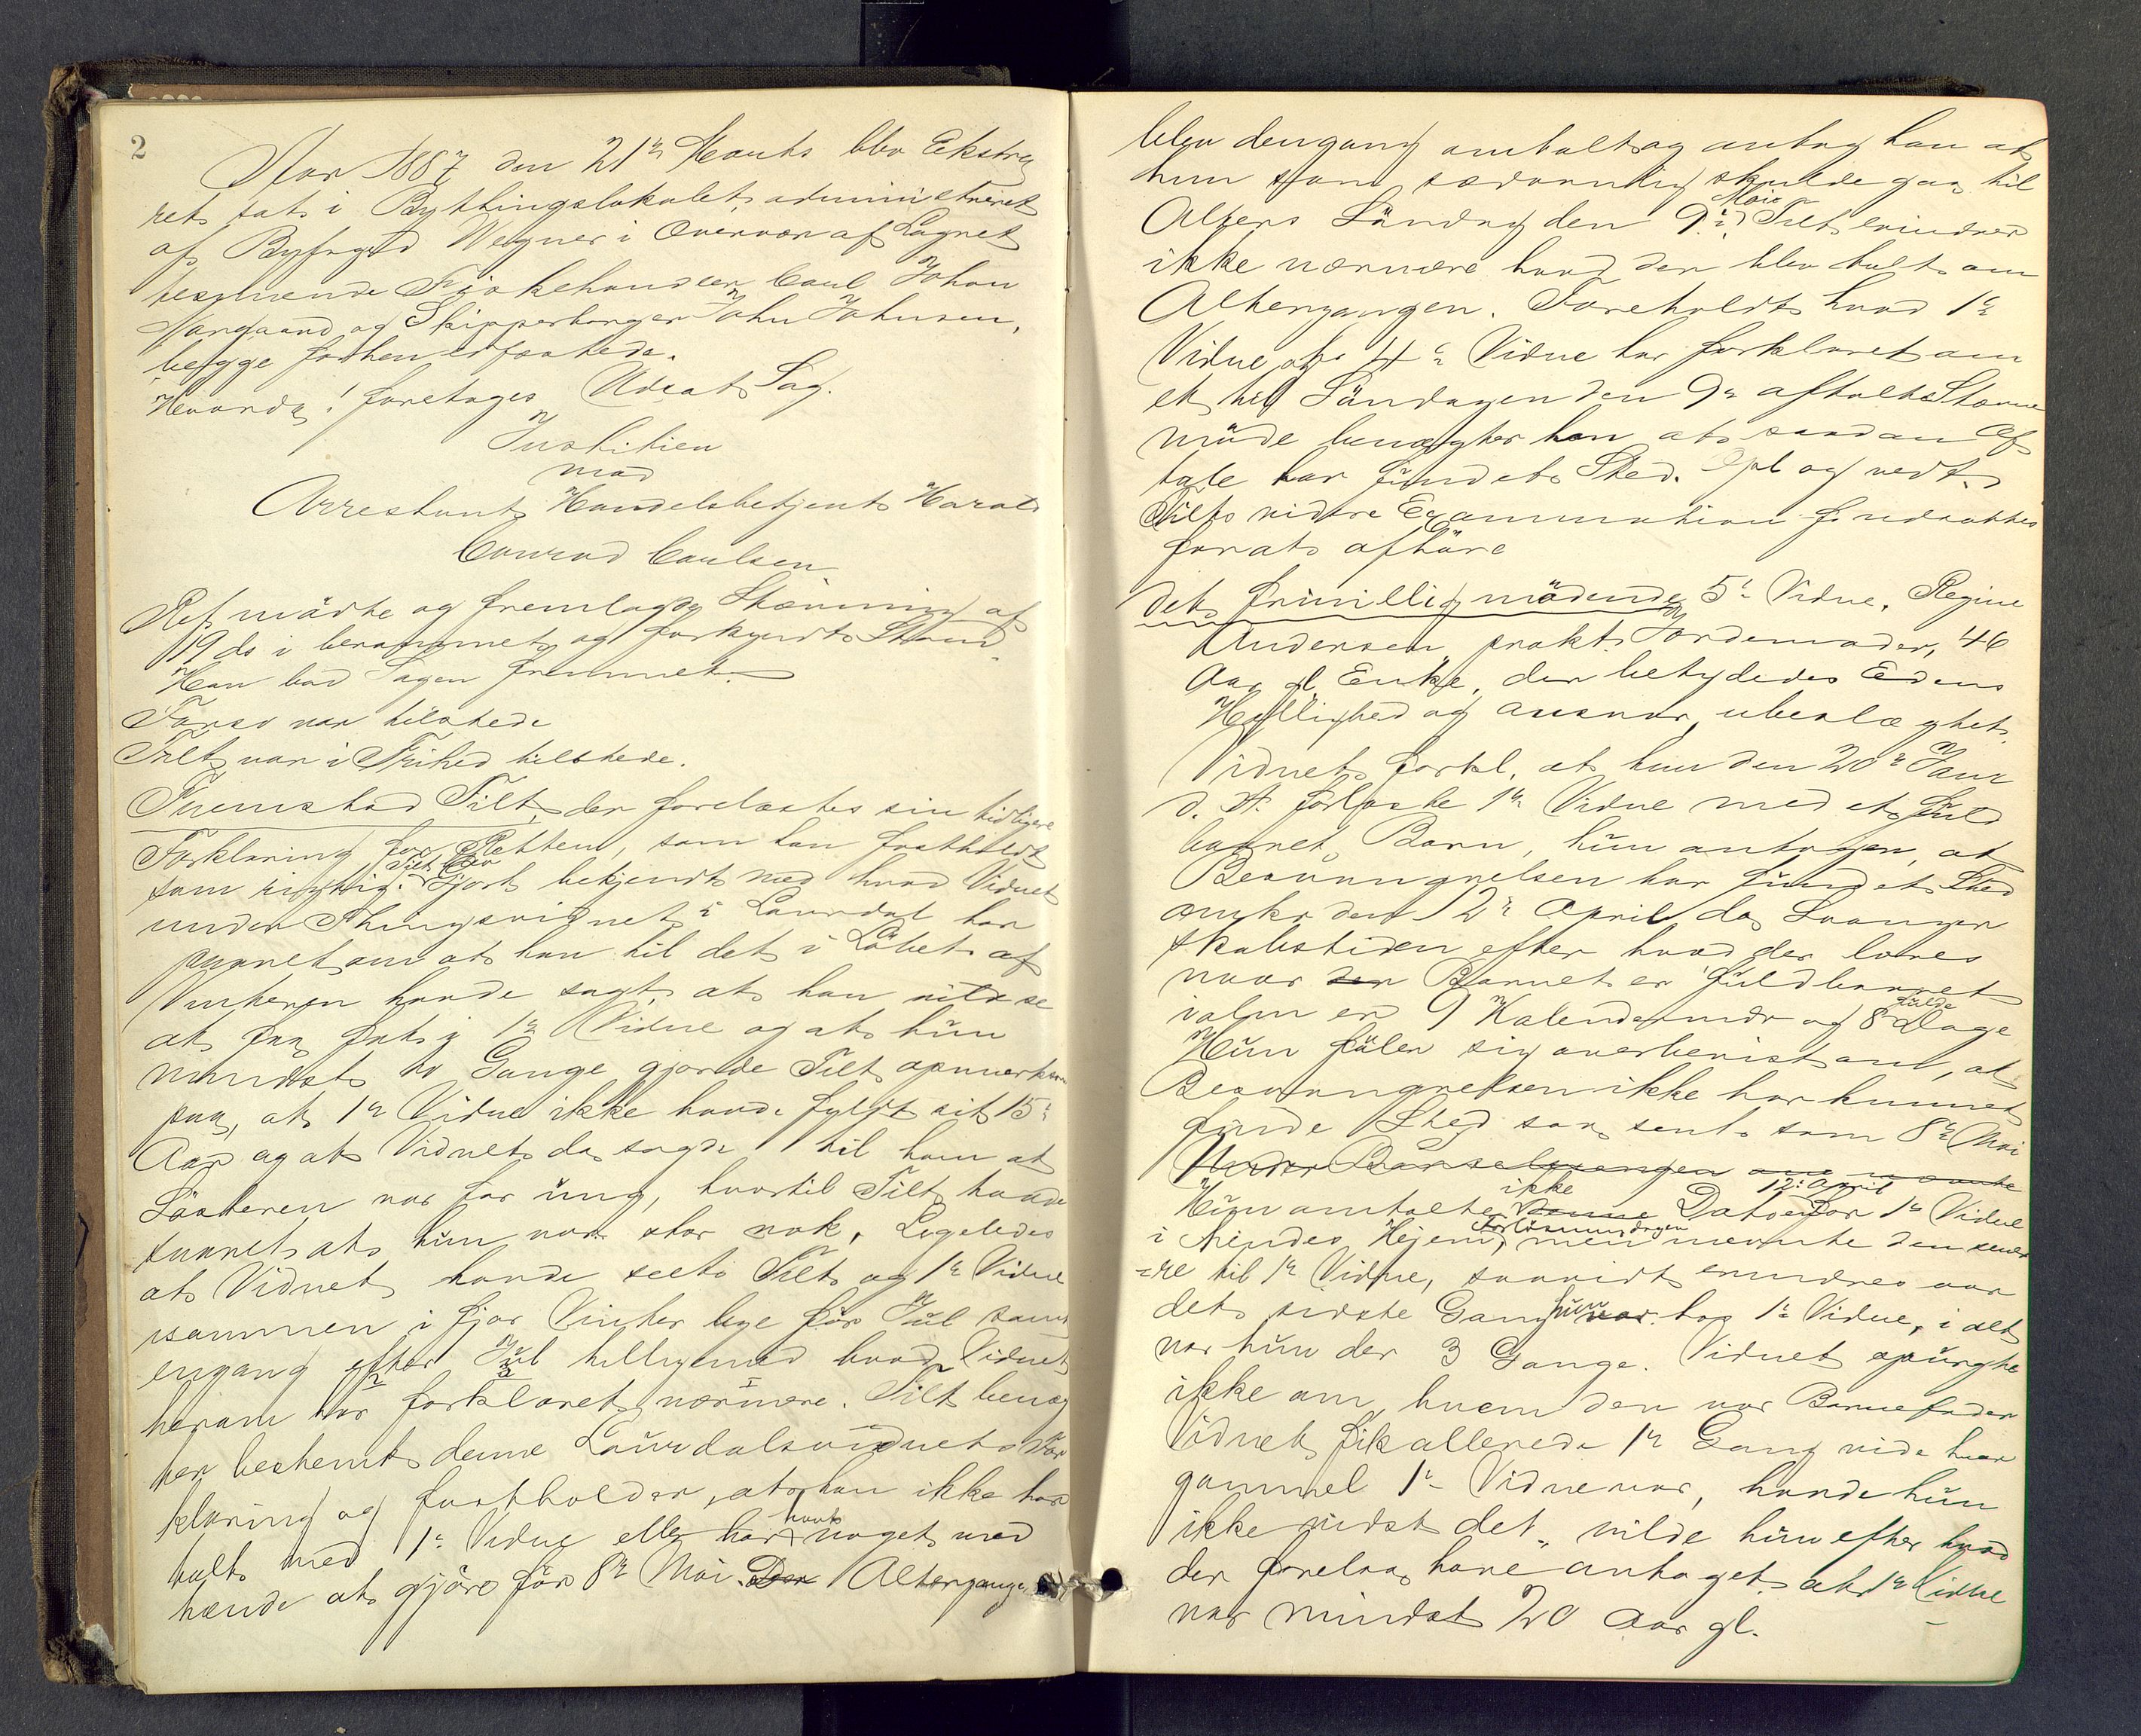 2
Aar 1887 den 21de Marts blev Ekstra
ret sat i Bythingslokalet, administreret
af Byfoged Wegner i Overvær af Lagret
tesmænde Fiskehandler Carl Johan
Norgaard og Skipperborger John Johnsen,
begge forhen edfæstede.
Hvorda! foretoges Udsat Sag.
Justitien
mod
Arrestant Handelsbetjent Harald
Conrad Carlsen
Ref mødte og fremlagde Stævning af
19 ds i berammet og forkyndt Stand
Han bad Sagen fremmet.
Forsv var tilstede
Tilt var i Frihed tilstede.
Fremstod Tilt, der forelæstes sin tidligere
Forklaring for Retten, som han fastholdt
som rigtig. Tilt blev Gjort bekjendt med hvad Vidnet
under Thingsvidnet i Laurdal har
paaret om at han til det i Løbet af
Vinteren havde sagt, at han vilde se
at faa fat i 1ste Vidne og at hun
mindst to Gange gjorde Tilt opmerksom
paa, at 1ste Vidne ikke havde fyldt sit 15de
Aar og at Vidnet da sagde til ham at
Søsteren var for ung, hvortil Tilt havde
svaret at hun var stor nok, Ligeledes
at Vidnet havde seet Tilt og 1ste Vidne
sammen i fjor Vinter lige før Jul samt
engang efter Jul tilligemed hvad Vidnet
herom har forklaret nærmere. Tilt benæg
ter bestemt denne Laurdalsvidnets For
klaring og fastholder, at han ikke har
talt med 1ste Vidne eller har havt noget med
hende at gjøre før 8de Mai. Den Altergangen
blev dengang omtalt og antog han at
hun som sædvanlig skulde gaa til
Alters Søndag den 9de Mai Tilt erindrer
ikke nærmere hvad der blev talt om
Altergangen. Foreholdt hvad 1ste
Vidne og 4de Vidne har forklaret om
et til Søndagen den 9de aftalt Stævne
møde benægter han at saadan Af
tale har fundet Sted. Opl og vedt.
Tilts videre Examination f udsattes
for at afhøre
det frivillig mødende 5te Vidne, Regine
Andersen, prakt. Jordemoder, 46
Aar gl Enke, der betydedes Edens
Hellighed og Ansvar, ubeslægtet.
Vidnet forkl. at hun den 20de Janr
d. A. forløste 1ste Vidne med et fuld
baaret Barn, hun antager, at
Besvangrelsen har fundet Sted
omkr den 12te April da Svanger
skabstiden efter hvad der læres
naar den Barnet er fuldbaaret
ialm er 9 Kalendermdr og 8 fulde Dage
Hun føler sig overbevist om, at
Besvangrelsen ikke har kunnet
finde Sted saa sent som 8de Mai
Under Barselsengen
Hun omtalte ikke denne Datoen 12te April for 1ste Vidne
i hendes Hjem, Forløsningsdagen men nævnte den sene
=re til 1ste Vidne, saavidt erindres var
det sidste Gang hun var hos 1ste Vidne, i alt
var hun der 3 Gange. Vidnet spurgte
ikke om, hvem der var Barnefader
Vidnet fik allerede 1ste Gang vide hvor
gammel 1ste Vidne var, havde hun
ikke vidst det, vilde hun efter hvad
der forelaa have antaget at 1ste Vidne
var mindst 20 Aar gl.